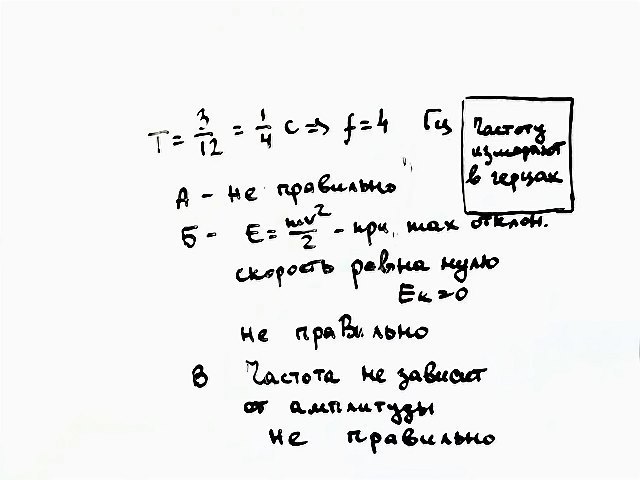 T = 3/12 = 1/4 с => f = 4 Гц
Частоту
измеряют
в герцах
А - не правильно
Б - E = mv²/2 - при max отклон.
скорость равна нулю
Eк = 0
не правильно
В Частота не зависит
от амплитуды
не правильно